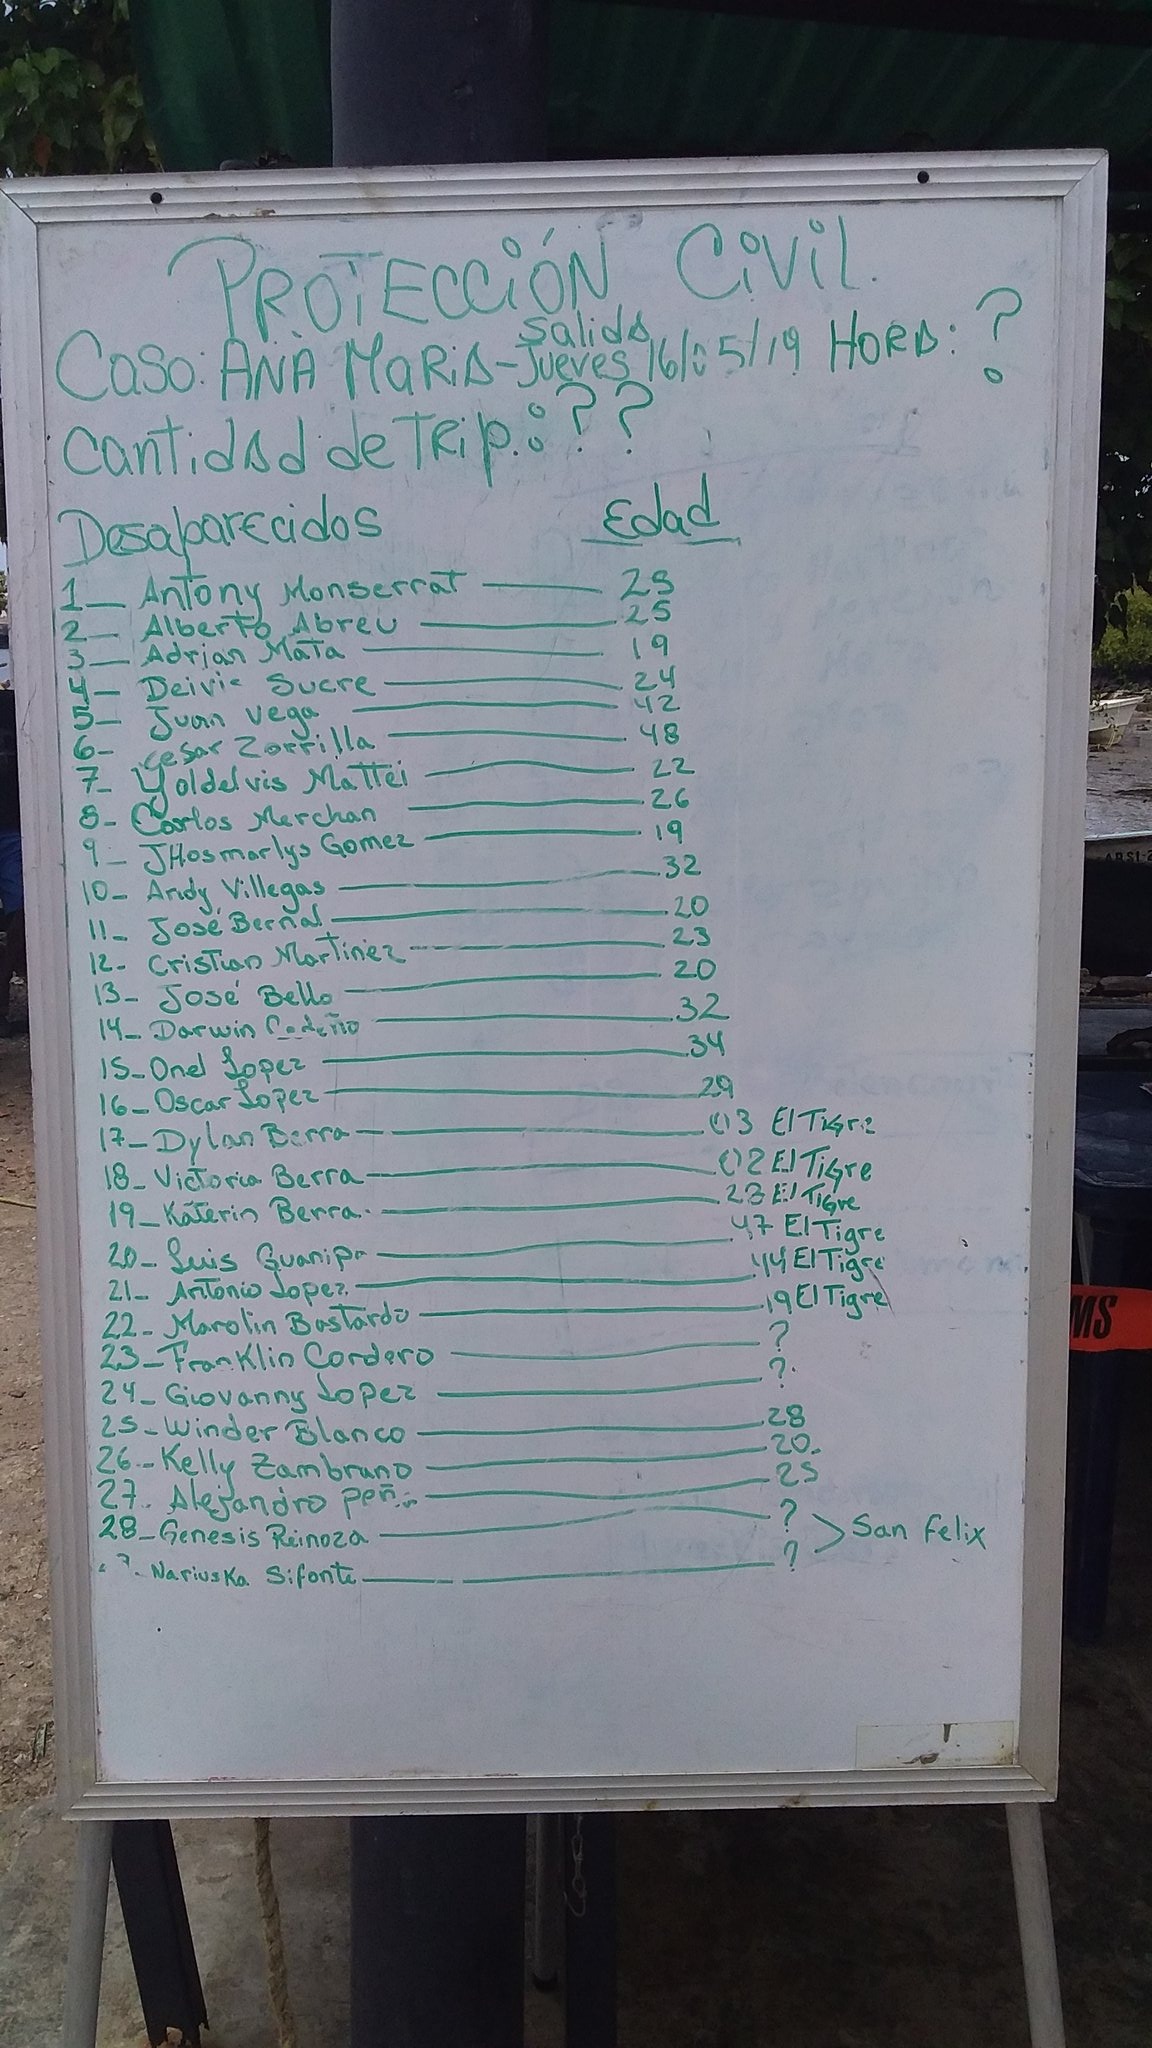 PROTECCIÓN CIVIL.
Salida
Caso: ANA MARIA - Jueves 16/05/19 HORA: ?
Cantidad de TRIP.: ??
Desaparecidos Edad
1_ Antony Monserrat 25
2_ Alberto Abreu 25
3_ Adrian Mata 19
4_ Deivis Sucre 24
5_ Juan Vega 42
6_ Cesar Zorrilla 48
7_ Yoldelvis Mattei 22
8_ Carlos Merchan 26
9_ JHosmarlys Gomez 19
10_ Andy Villegas 32
11_ José Bernal 20
12- Cristian Martinez 23
13- José Bello 20
14- Darwin Cedeño 32
15_ Onel Lopez 34
16_ Oscar Lopez 29
17_ Dylan Berra 03 El Tigre
18- Victoria Berra 02 El Tigre
19_ Katerin Berra 23 El Tigre
20_ Luis Guanipa 47 El Tigre
21_ Antonio Lopez 44 El Tigre
22_ Marolin Bastardo 19 El Tigre
23_ Franklin Cordero ?
24_ Giovanny Lopez ?
25_ Winder Blanco 28
26_ Kelly Zambrano 20.
27. Alejandro 25
28_ Genesis Reinoza ?
San Felix
Nariuska Sifonte ?
MS